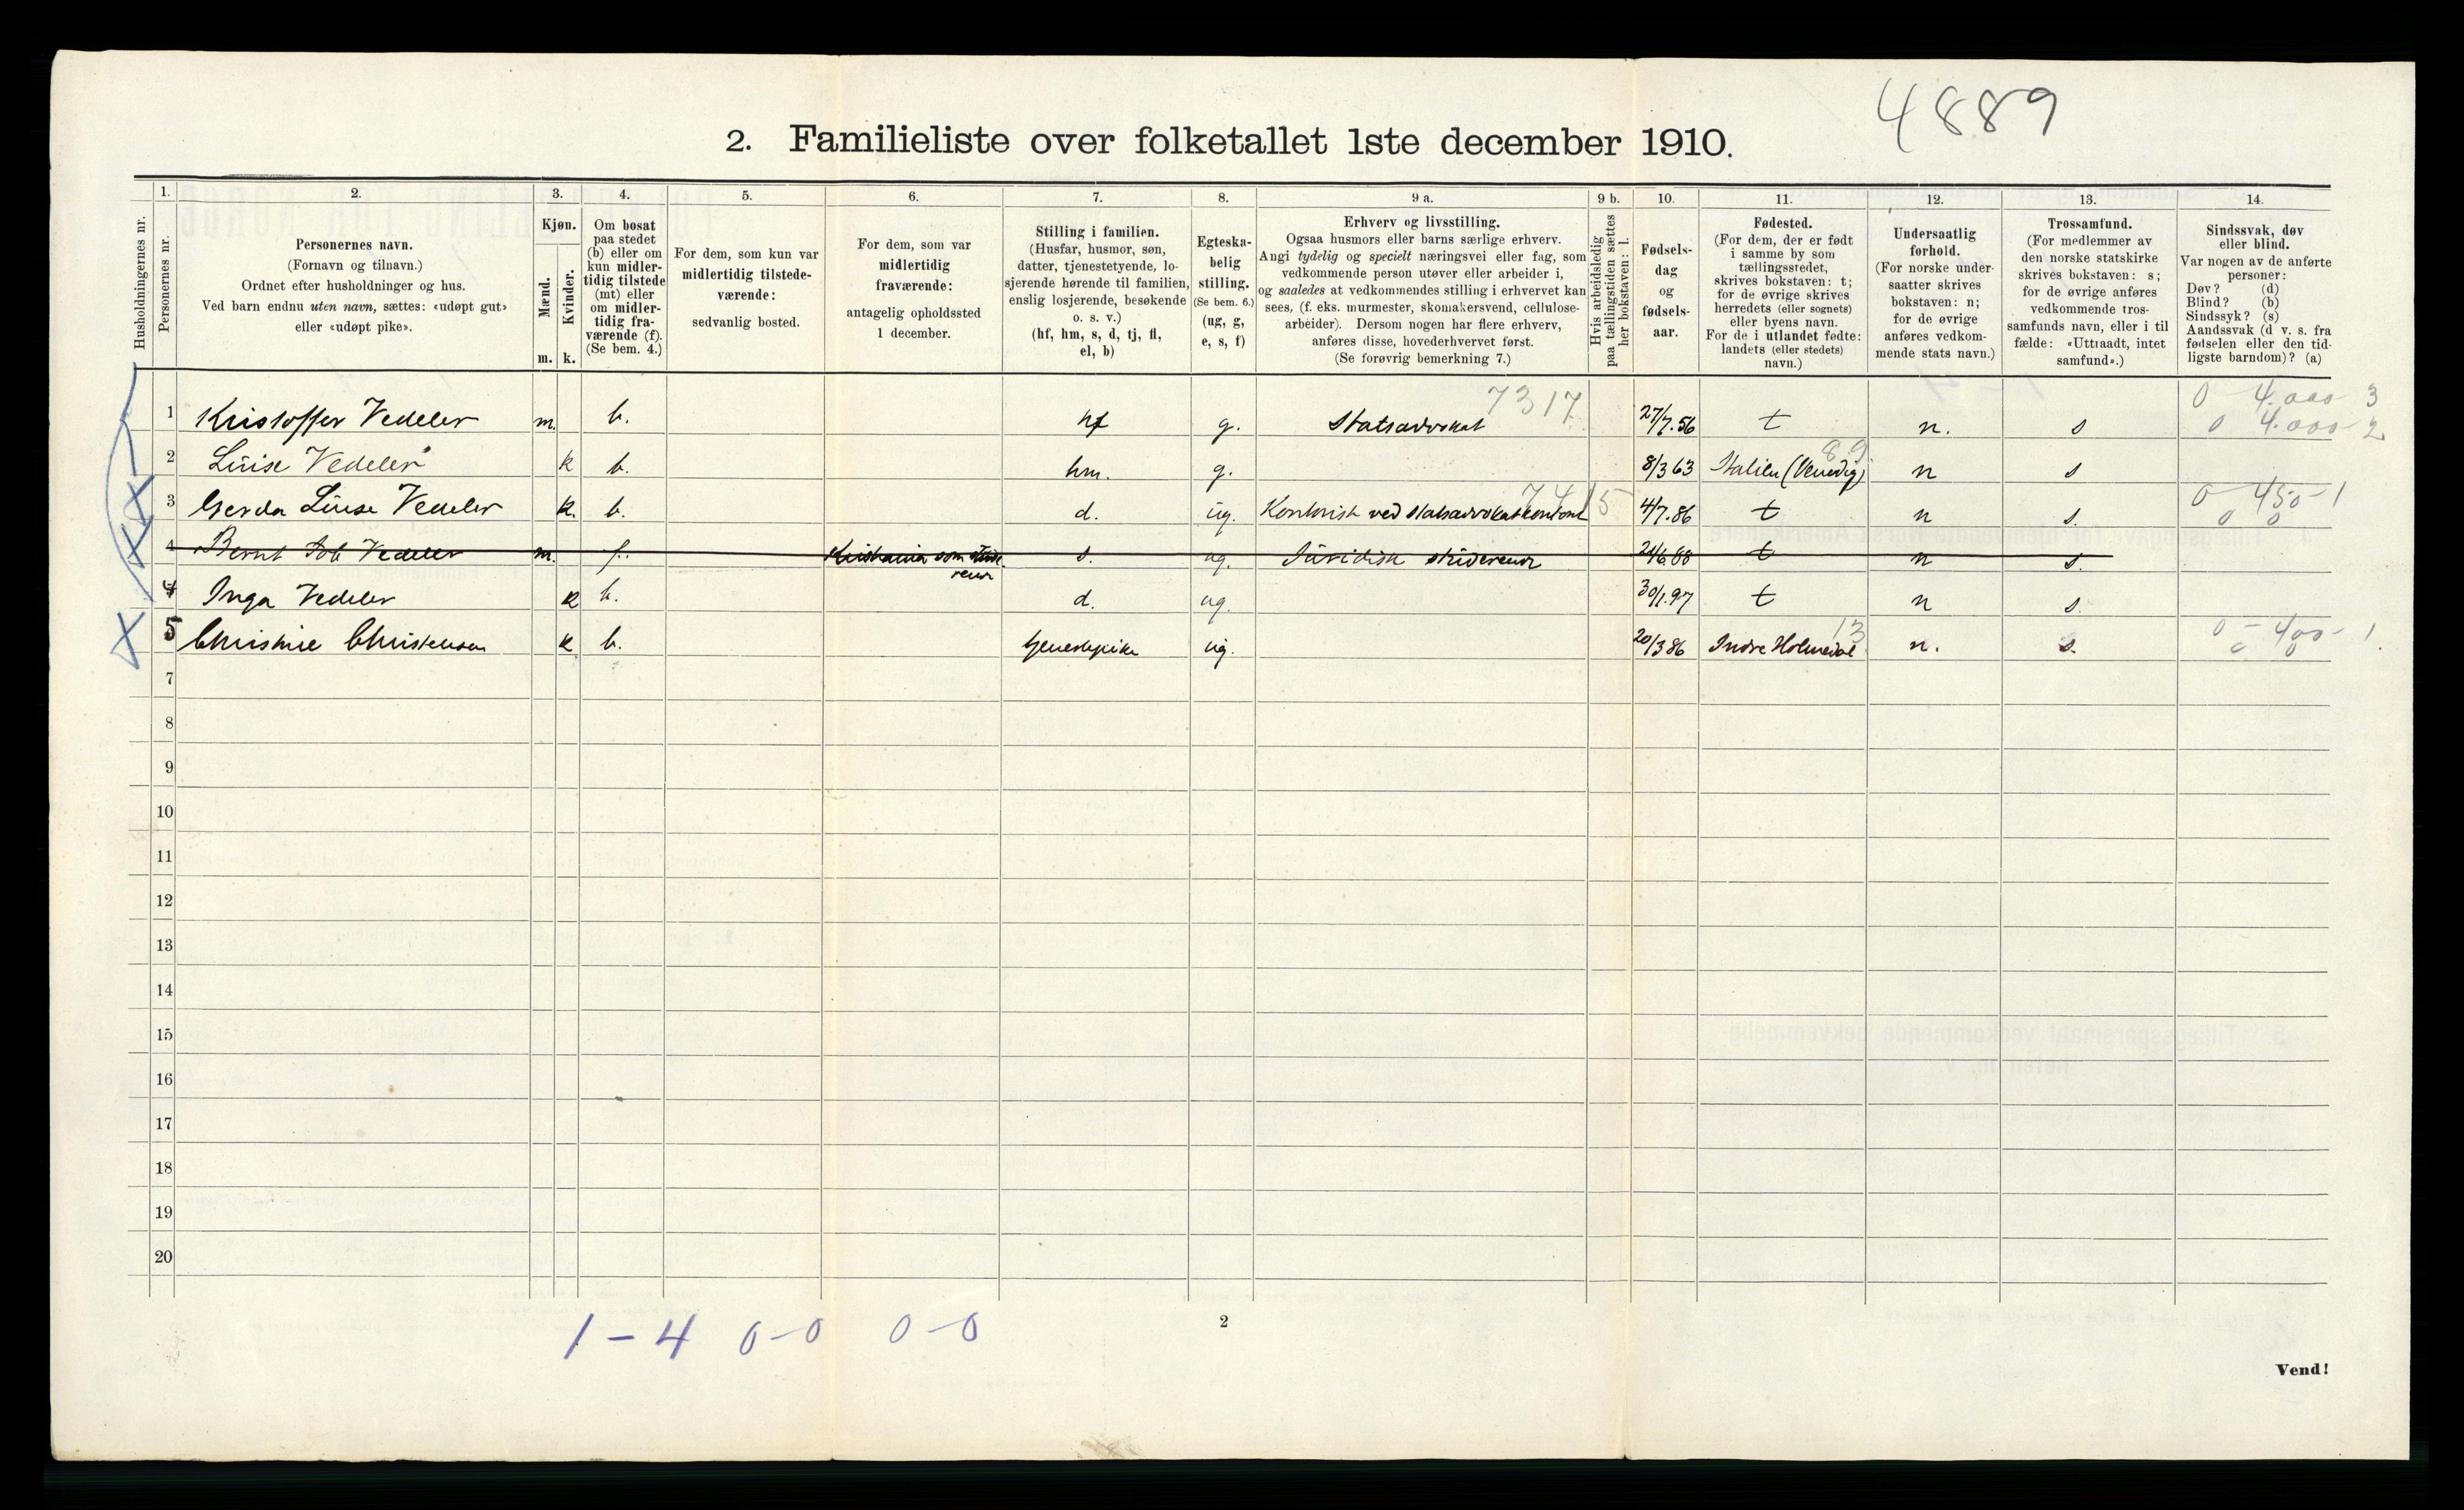 4889
2. Familieliste over folketallet 1ste december 1910.
Husholdningernes nr.
1.
Personernes nr.
2.
Personernes navn.
(Fornavn og tilnavn.)
Ordnet efter husholdninger og hus.
Ved barn endnu uten navn, sættes: «udøpt gut»
eller «udøpt pike».
3.
Kjøn.
Mænd.
Kvinder.
m. k.
4.
Om bosat
paa stedet
(b) eller om
kun midler-
tidig tilstede
(mt) eller
om midler-
tidig fra-
værende (f).
(Se bem. 4.)
5.
For dem, som kun var
midlertidig tilstede-
værende:
sedvanlig bosted.
6.
For dem, som var
midlertidig
fraværende:
antagelig opholdssted
1 december.
7.
Stilling i familien.
(Husfar, husmor, søn,
datter, tjenestetyende, lo-
sjerende hørende til familien,
enslig losjerende, besøkende
o. s. v.)
(hf, hm, s, d, tj, fl,
el, b)
8.
Egteska-
belig
stilling.
(Se bem. 6.)
(ug, g,
e, s, f)
9 a.
Erhverv og livsstilling.
Ogsaa husmors eller barns særlige erhverv.
Angi tydelig og specielt næringsvei eller fag, som
vedkommende person utøver eller arbeider i,
og saaledes at vedkommendes stilling i erhvervet kan
sees, (f. eks. murmester, skomakersvend, cellulose-
arbeider). Dersom nogen har flere erhverv,
anføres disse, hovederhvervet først.
(Se forøvrig bemerkning 7.)
9 b.
Hvis arbeidsledig
paa tællingstiden sættes
her bokstaven: l.
10.
Fødsels-
dag
og
fødsels-
aar.
11.
Fødested.
(For dem, der er født
i samme by som
tællingsstedet,
skrives bokstaven: t;
for de øvrige skrives
herredets (eller sognets)
eller byens navn.
For de i utlandet fødte:
landets (eller stedets)
navn.)
12.
Undersaatlig
forhold.
(For norske under-
saatter skrives
bokstaven: n;
for de øvrige
anføres vedkom-
mende stats navn.)
13.
Trossamfund.
(For medlemmer av
den norske statskirke
skrives bokstaven: s;
for de øvrige anføres
vedkommende tros-
samfunds navn, eller i til
fælde: «Uttraadt, intet
samfund».)
14.
Sindssvak, døv
eller blind.
Var nogen av de anførte
personer:
Døv? (d)
Blind? (b)
Sindssyk? (s)
Aandssvak (d v. s. fra
fødselen eller den tid-
ligste barndom)? (a)
7317 0 4.000 3
1 Kristoffer Vedeler m. b. hf g. Statsadvokat 27/7.56 t n. s 0 4.000 2
2 Luise Vedeler k b. hm. g. 8/3 63 Italien (Venedig) 89 n s
3 Gerda Luise Vedeler k. b. d. ug. Kontorist ved statsadvokatkontoret 7415 4/7.86 t n s. 0 450 1
0 0
4 Bernt Vedeler m. f. Kristiania som stude-
rende s. ug. Juridisk studerende 21/6.88 t n s.
4 Inga Vedeler k b. d. ug. 30/1.97 t n s.
5 Christine Christensen k b. tjenestepike ug. 20/3 86 Indre Holmedal 13 n. s. 0 - 400 - 1
0 0
7
8
9
10
11
12
13
14
15
16
17
18
19
20
1 - 4 0-0 0-0
2
Vend!